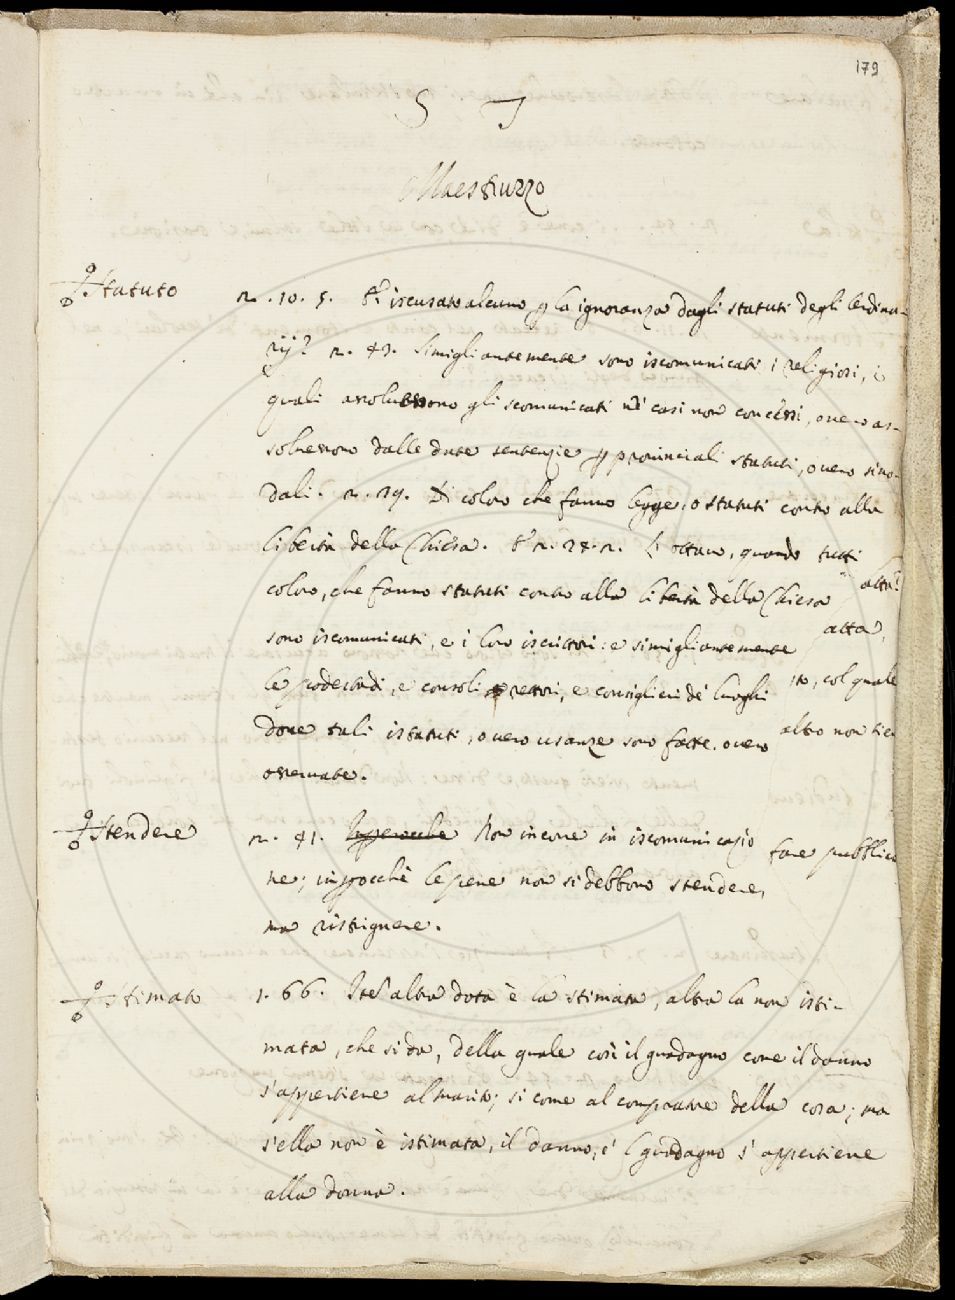 179
S T
Maestruzzo
Statuto
2. 10. 5. È iscusato alcuno p la ignoranza dagli statuti degli Ordina-
rij? 2. 43. Simigliantemente sono iscomunicati i religiosi, i
quali assolvessono gli scomunicati ne' casi non concessi, overo as-
solvessono dalle date sentenzie p provinciali statuti, overo sino-
dali. 2. 29. Di coloro che fanno legge, o statuti contro alla
libertà della Chiesa. 2. 28. 2. L'ottavo, quando tutti
coloro, che fanno statuti contro alla libertà della Chiesa
sono iscomunicati, e i loro iscrittori: e simigliantemente
le podestadi, e consoli rettori, e consiglieri de' luoghi
dove tali istatuti, overo usanze sono fatte, overo
osservate.
alta
to, col quale
altro non tie
Stendere
2. 41. Non incorre in iscomunicazio
ne; imp̱occhè le pene non si debbono stendere,
ma ristrignere.
fare pubblico
Stimato
1. 66. altra dota è la stimata, altra la non isti-
mata, che si da, della quale così il guadagno come il danno
s'appertiene al marito; sì come al compratore della cosa; ma
s'ella non è istimata, il danno, e 'l guadagno s'appertiene
alla donna.